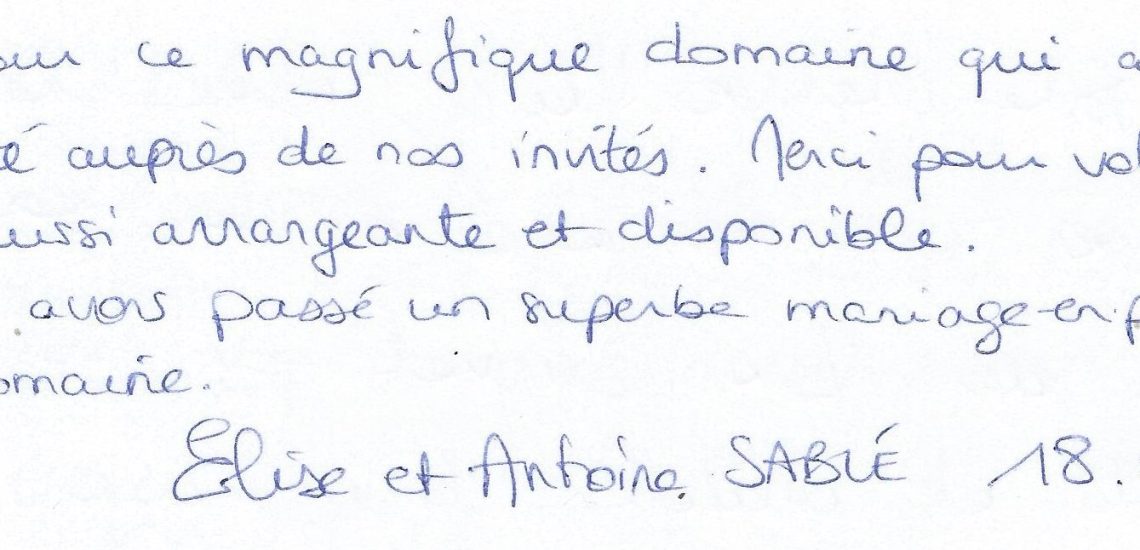 our ce magnifique domaine qui a
té auprès de nos invités. Merci pour vot
ussi arrangeante et disponible.
avons passé un superbe mariage en p
omaine.
Elise et Antoine SABLÉ 18.